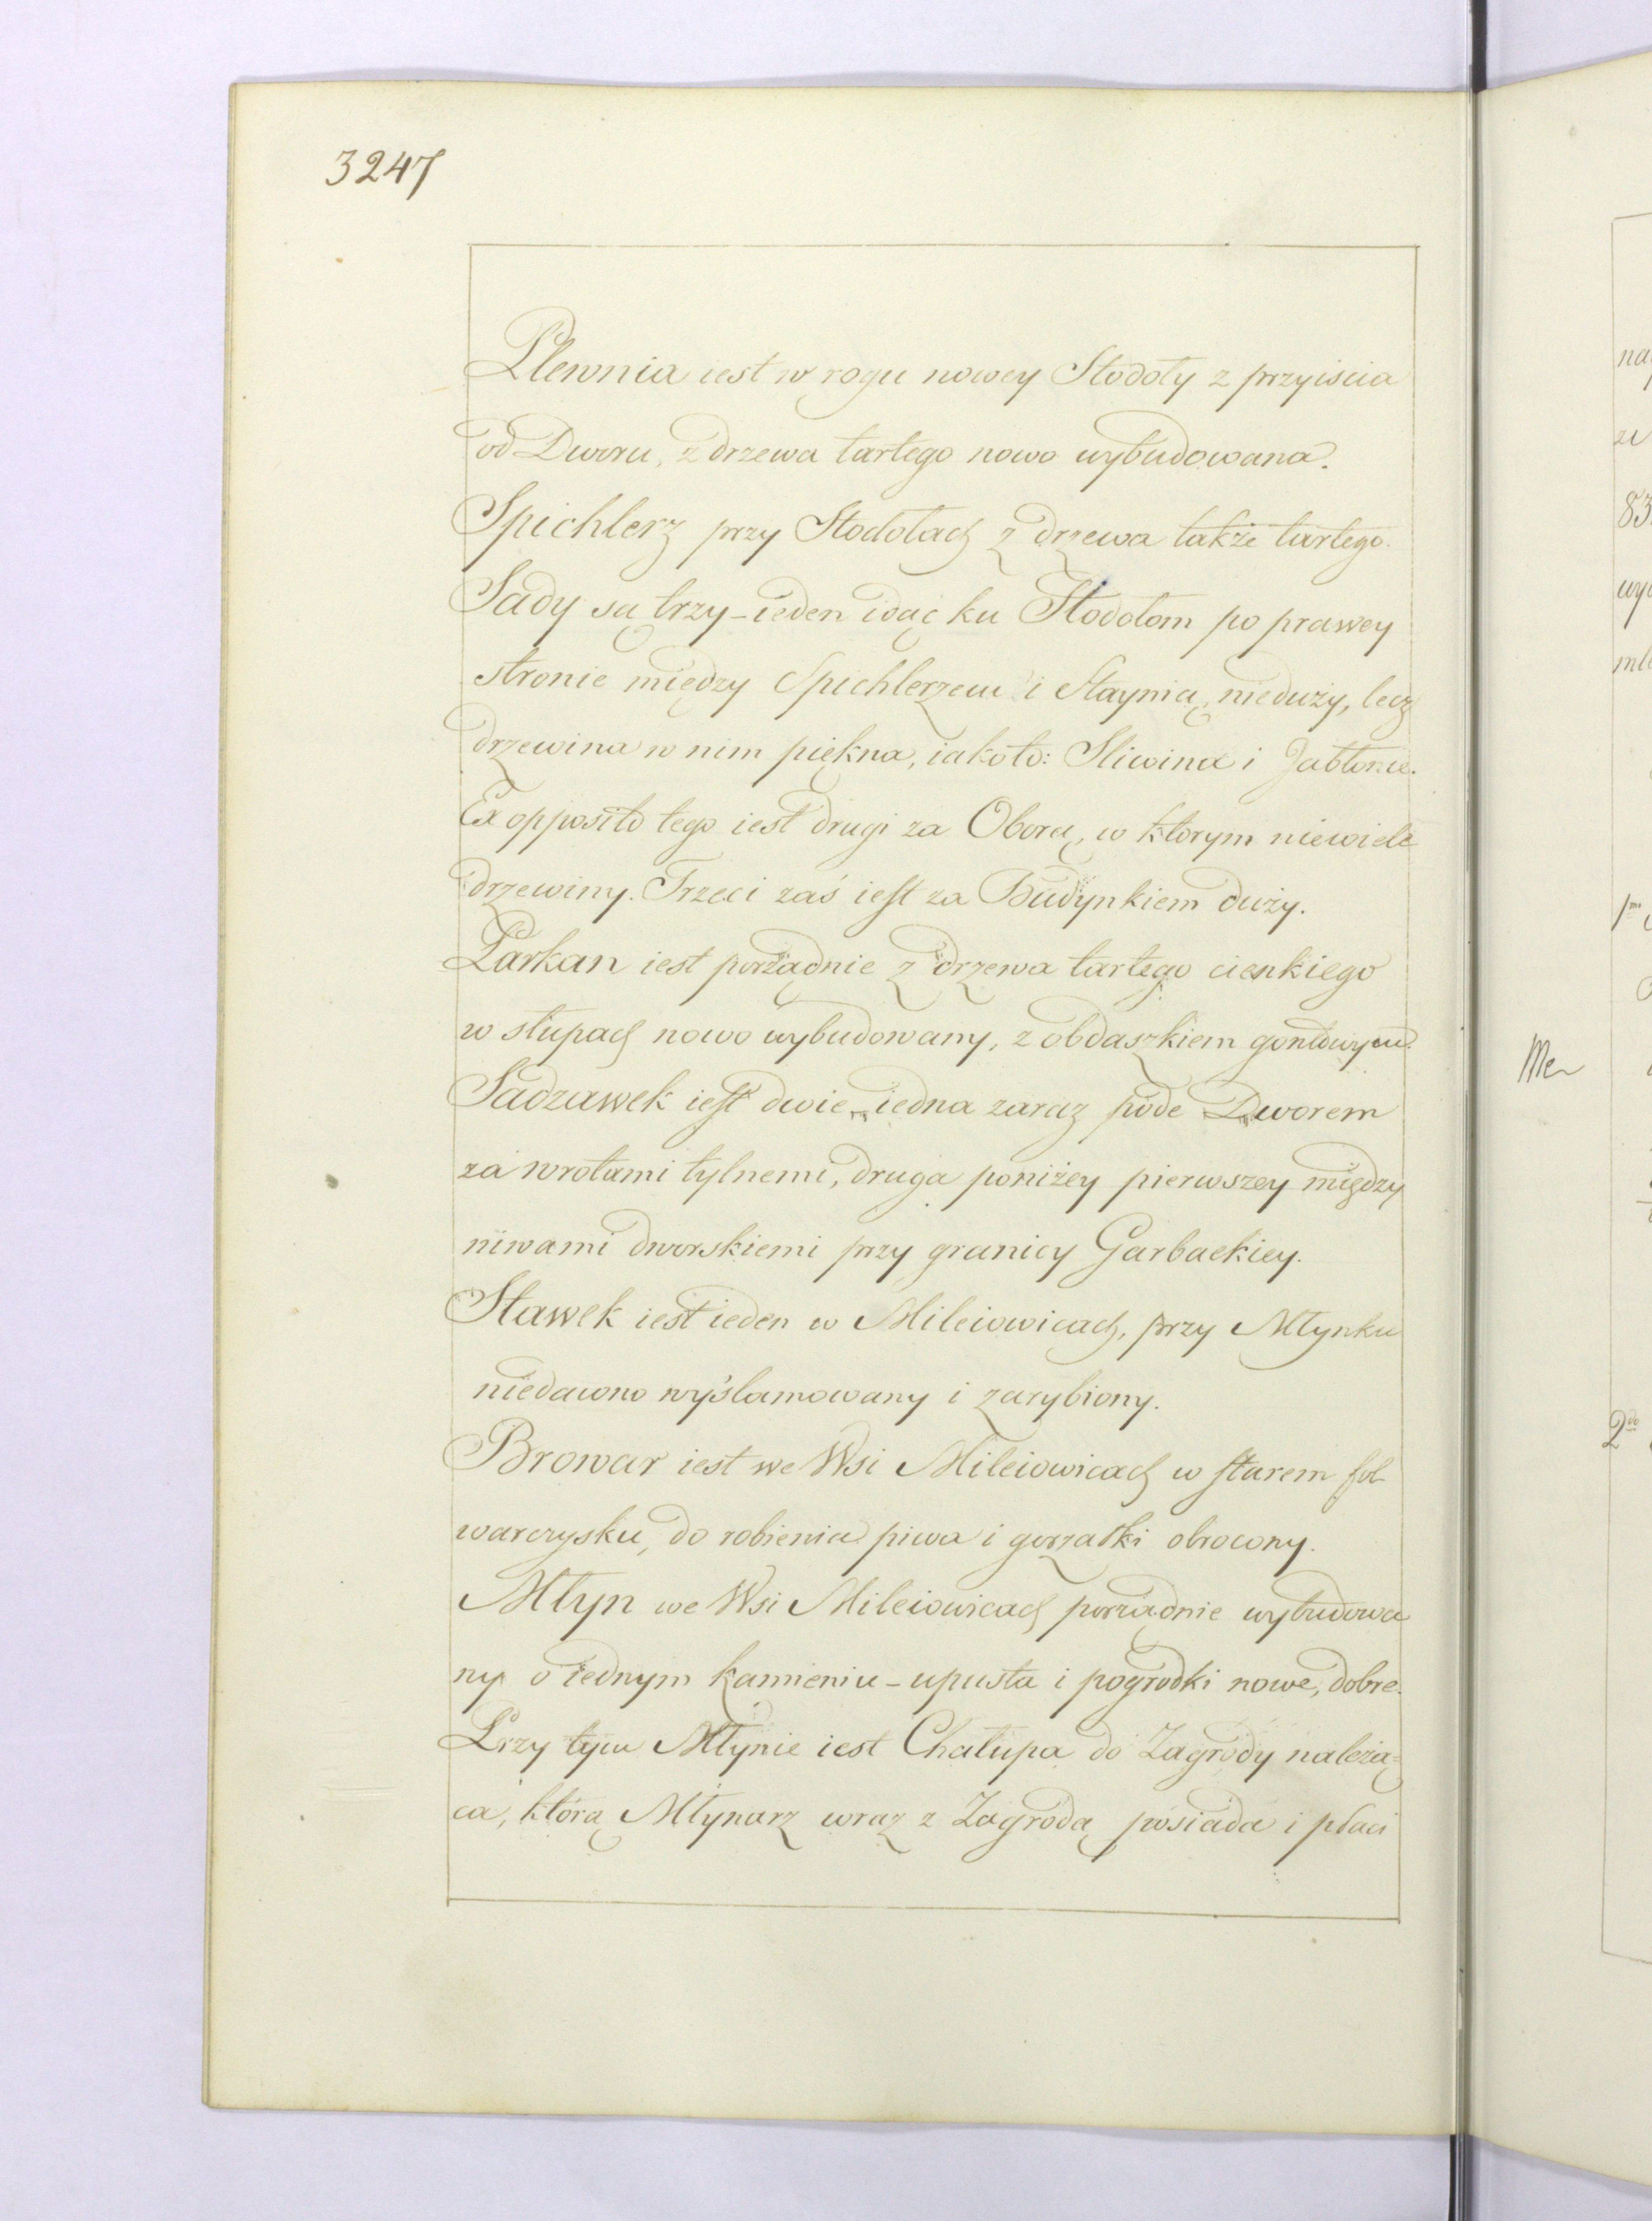 3247
Plewnia iest w rogu nowey Stodoły z przyiscia
od Dworu, z drzewa tartego nowo wybudowana.
Spichlerz przy Stodołach z drzewa także tartego.
Sady są trzy - ieden idąc ku Stodołom po prawey
stronie między Spichlerzem i Staynią, nieduży, lecz
drzewina w nim piękna, iakoto: Sliwina i Jabłonie.
Ex opposito tego iest drugi za Oborą, w ktorym niewiele
drzewiny. Trzeci zaś iest za Budynkiem duży.
Parkan iest porządnie z drzewa tartego cienkiego
w słupach nowo wybudowany, z obdaszkiem gontowym.
Sadzawek iest dwie - iedna zaraz pode Dworem
za wrotami tylnemi, druga poniżey pierwszey między
niwami dworskiemi przy granicy Garbackiey.
Stawek iest ieden w Mileiowicach, przy Młynku
niedawno wyślamowany i zarybiony.
Browar iest we Wsi Mileiowicach w starem fol
warczysku, do robienia piwa i gorzałki obrocony.
Młyn we Wsi Mileiowicach porządnie wybudowa
ny o iednym kamieniu - upusta i pogrodki nowe, dobre.
Przy tym Młynie iest Chałupa do Zagrody należą=
ca, którą Młynarz wraz z Zagrodą posiada i płaci
na
ze
83
wy
mle
1mo
Me
2do